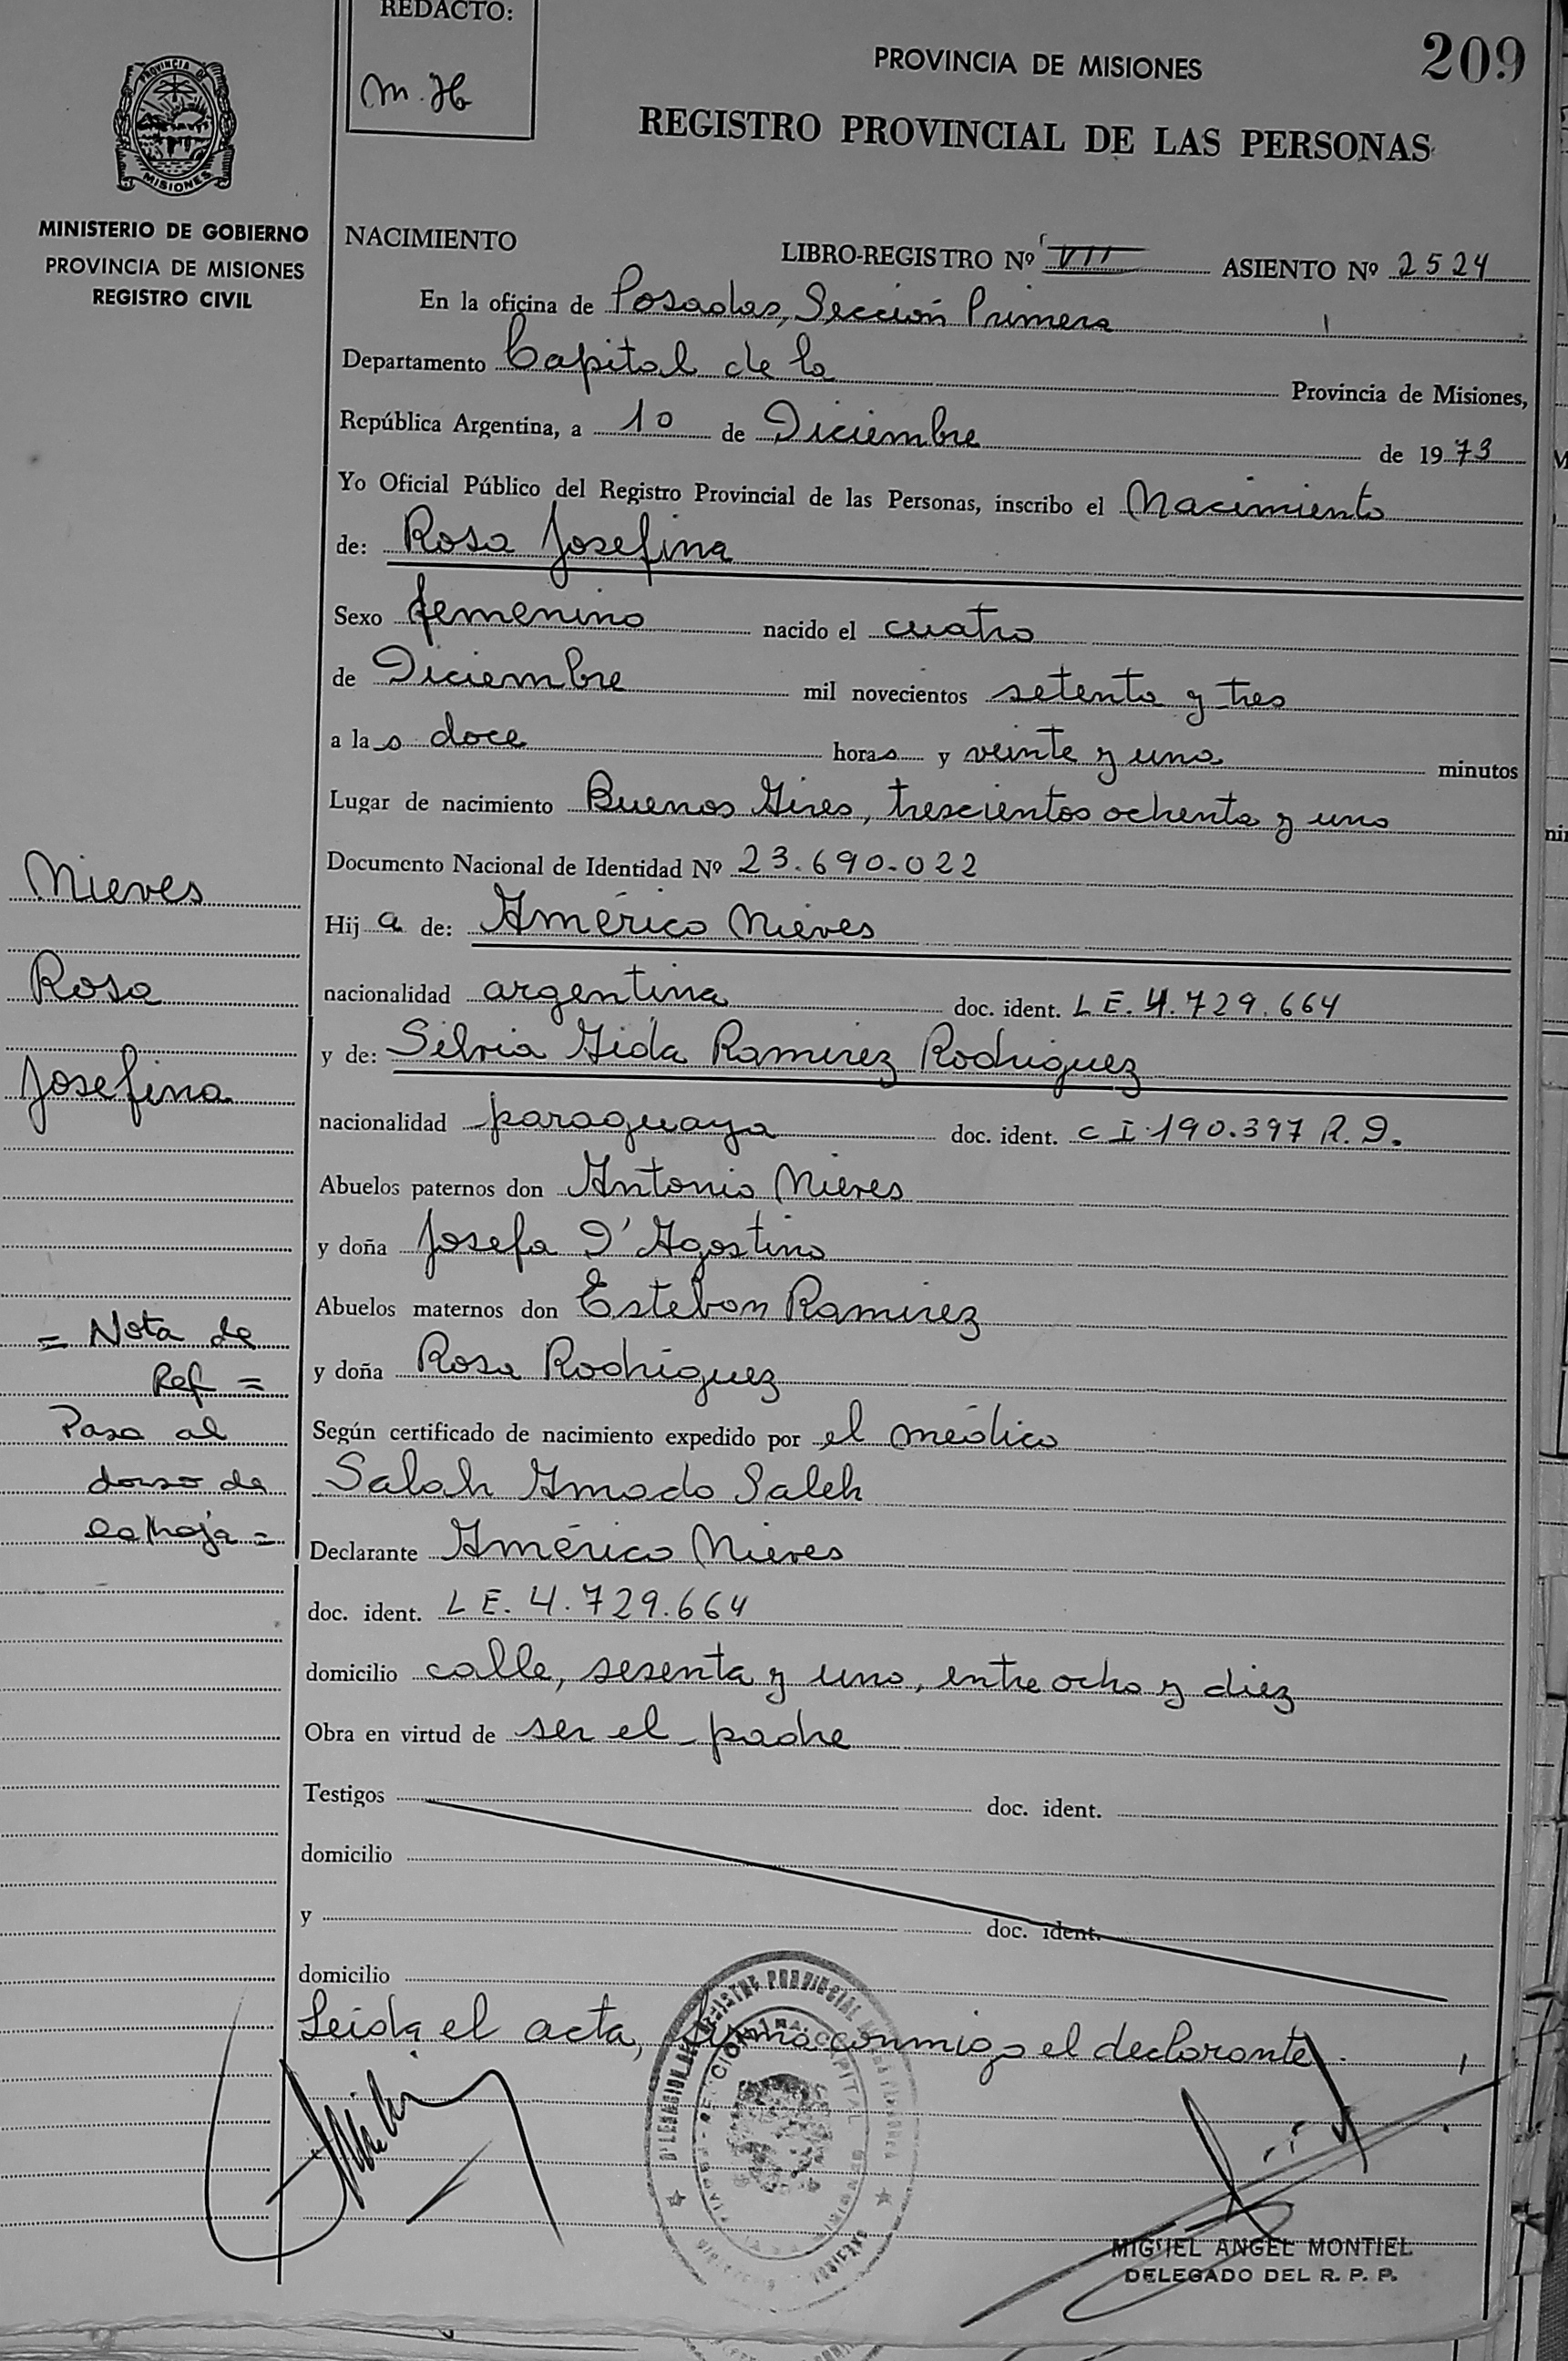 REDACTO:
M. H
PROVINCIA DE MISIONES
209
REGISTRO PROVINCIAL DE LAS PERSONAS
PROVINCIA DE
MISIONES
MINISTERIO DE GOBIERNO
PROVINCIA DE MISIONES
REGISTRO CIVIL
NACIMIENTO LIBRO-REGISTRO Nº VII ASIENTO Nº 2524
En la oficina de Posadas, Sección Primera
Departamento Capital de la Provincia de Misiones,
República Argentina, a 10 de Diciembre de 1973
Yo Oficial Público del Registro Provincial de las Personas, inscribo el Nacimiento
de: Rosa Josefina
Sexo femenino nacido el cuatro
de Diciembre mil novecientos setenta y tres
a las doce horas y veinte y uno minutos
Lugar de nacimiento Buenos Aires, trescientos ochenta y uno
Documento Nacional de Identidad Nº 23.690.022
Hija de: Américo Nieves
nacionalidad argentina doc. ident. L E. 4.729.664
y de: Silvia Aida Ramirez Rodriguez
nacionalidad paraguaya doc. ident. C I. 190.397 R.P.
Abuelos paternos don Antonio Nieves
y doña Josefa D'Agostino
Abuelos maternos don Esteban Ramirez
y doña Rosa Rodriguez
Según certificado de nacimiento expedido por el médico
Salah Amado Saleh
Declarante Américo Nieves
doc. ident. L E. 4.729.664
domicilio calle, sesenta y uno, entre ocho y diez
Obra en virtud de ser el padre
Testigos doc. ident.
domicilio
y doc. ident.
domicilio
Leida el acta, firma conmigo el declarante.
MIGUEL ANGEL MONTIEL
DELEGADO DEL R. P. P.
Nieves
Rosa
Josefina
= Nota de
Ref =
Pasa al
dorso de
la hoja =